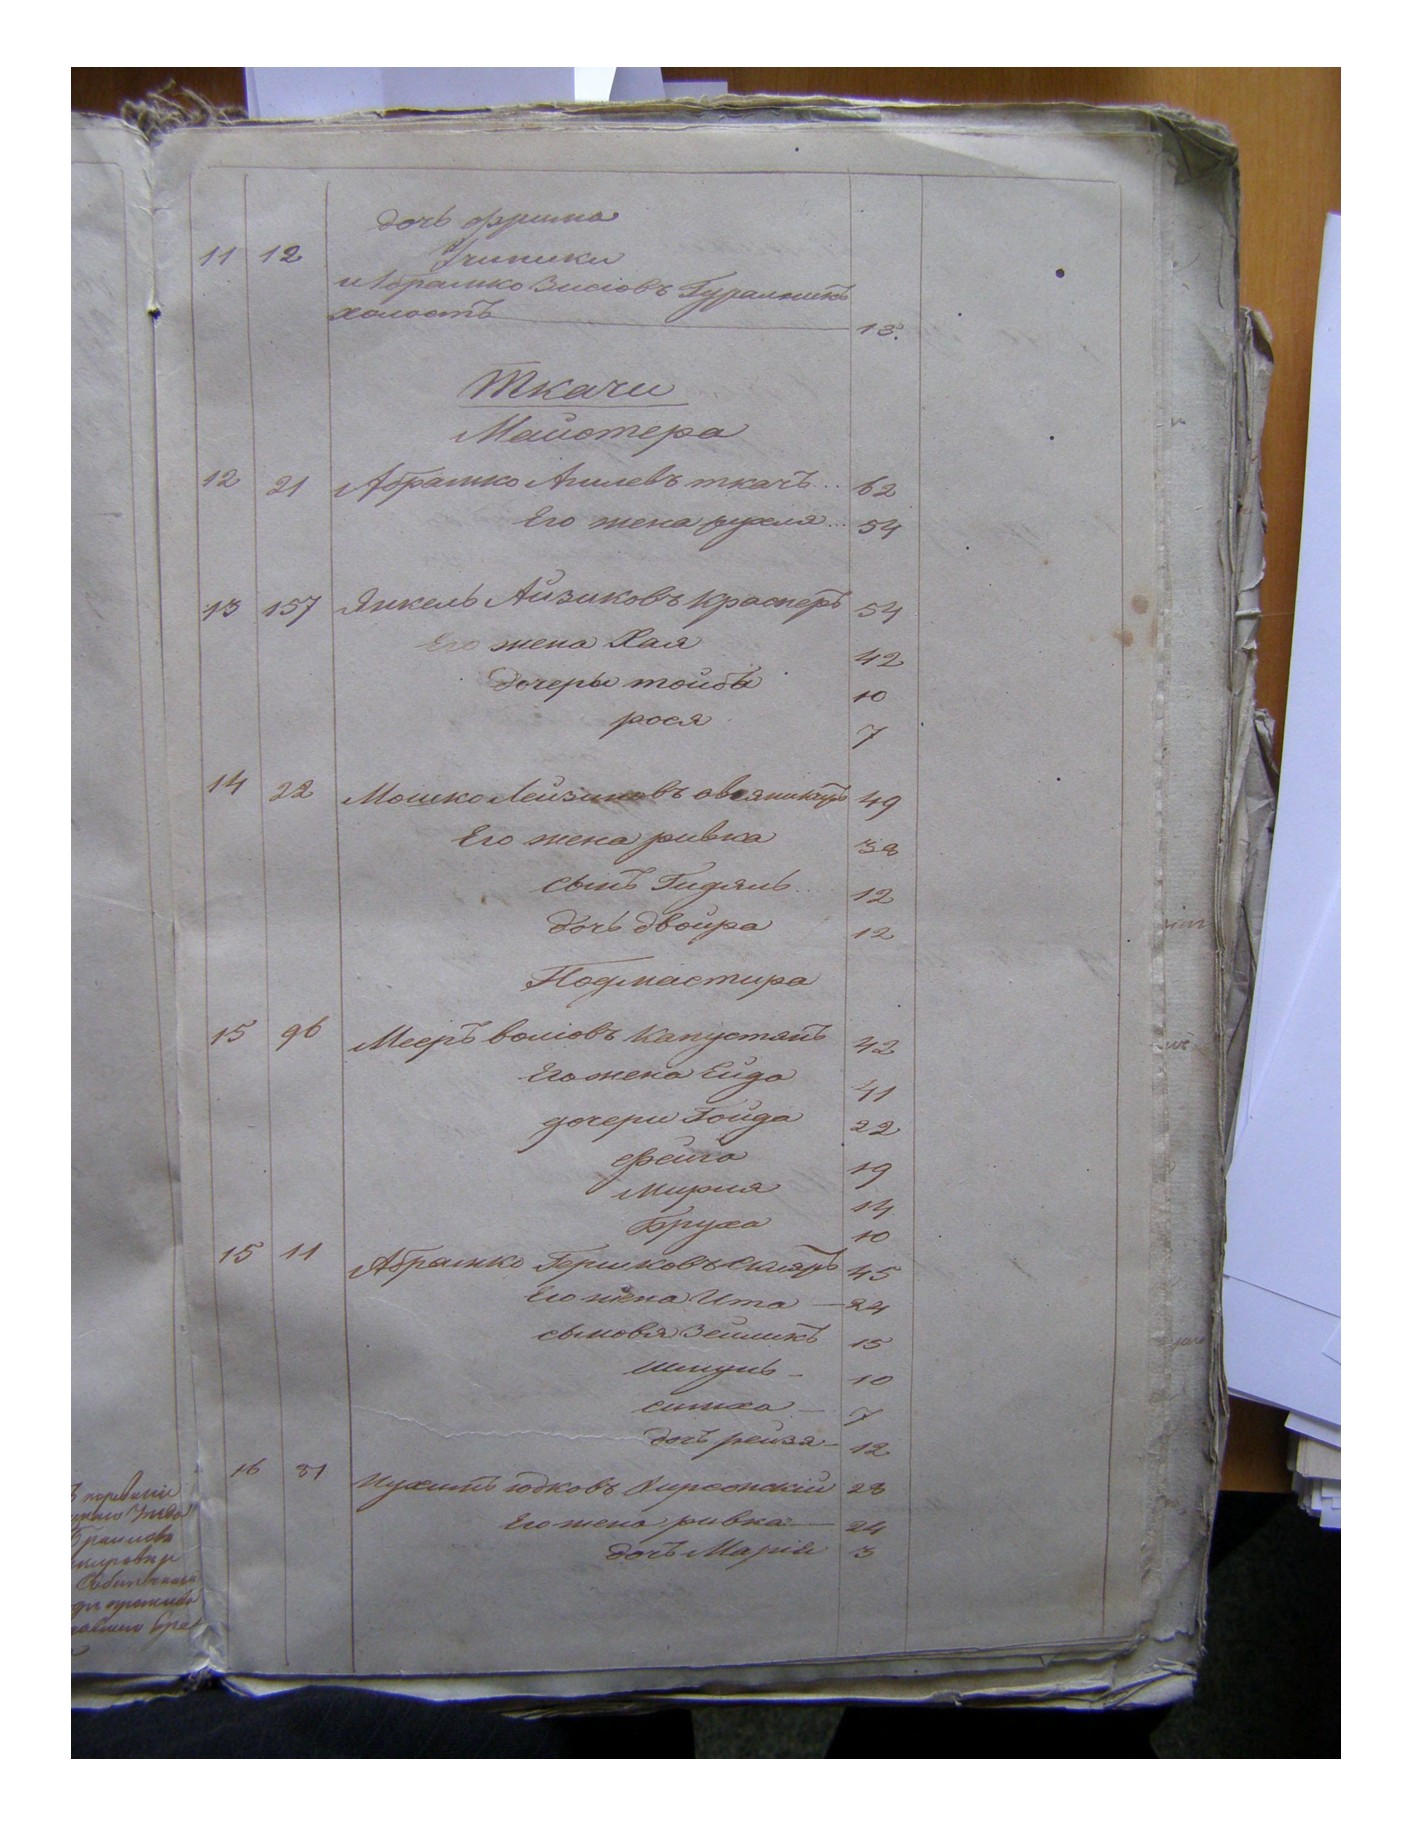 дочь фрима
11 12 Ученики
Абрамко Зисіовъ Гуральникъ
холостъ 13.
Ткачи
Майстера
12 21 Абрамко ткачъ 62
Его жена рухля 54
13 157 Янкель Айзиковъ 54
Его жена Хая 42
дочеры тойба 10
рося 7
14 22 Мошко Лейзиковъ 49
Его жена ривка 38
сынъ 12
дочь двойра 12
Подмастира
15 96 Мееръ волковъ Капустянъ 42
Его жена Ейда 41
дочери Гойда 22
фейга 19
Мирля 14
Бруха 10
15 11 Абрамко Гершковъ Скляръ 45
Его жена Ита 24
сыновя Зейликъ 15
шмуль 10
симха 7
дочь рейзя 12
16 81 Нухимъ юдковъ Хирсонскій 28
Его жена ривка 24
дочь Марія 3